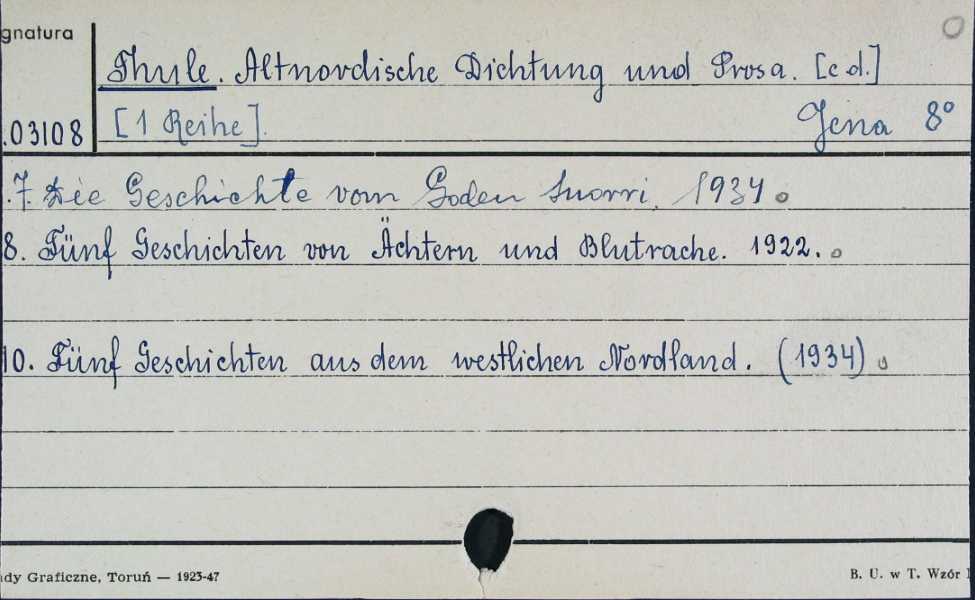 gnatura
Thule. Altnordische Dichtung und Prosa. [c d.]
.03108 [1 Reihe]. Jena 8°
.7. Die Geschichte vom Goden Snorri. 1934
8. Fünf Geschichten von Ächtern und Blutrache. 1922.
10. Fünf Geschichten aus dem westlichen Nordland. (1934)
ady Graficzne, Toruń — 1923-47 B. U. w T. Wzór